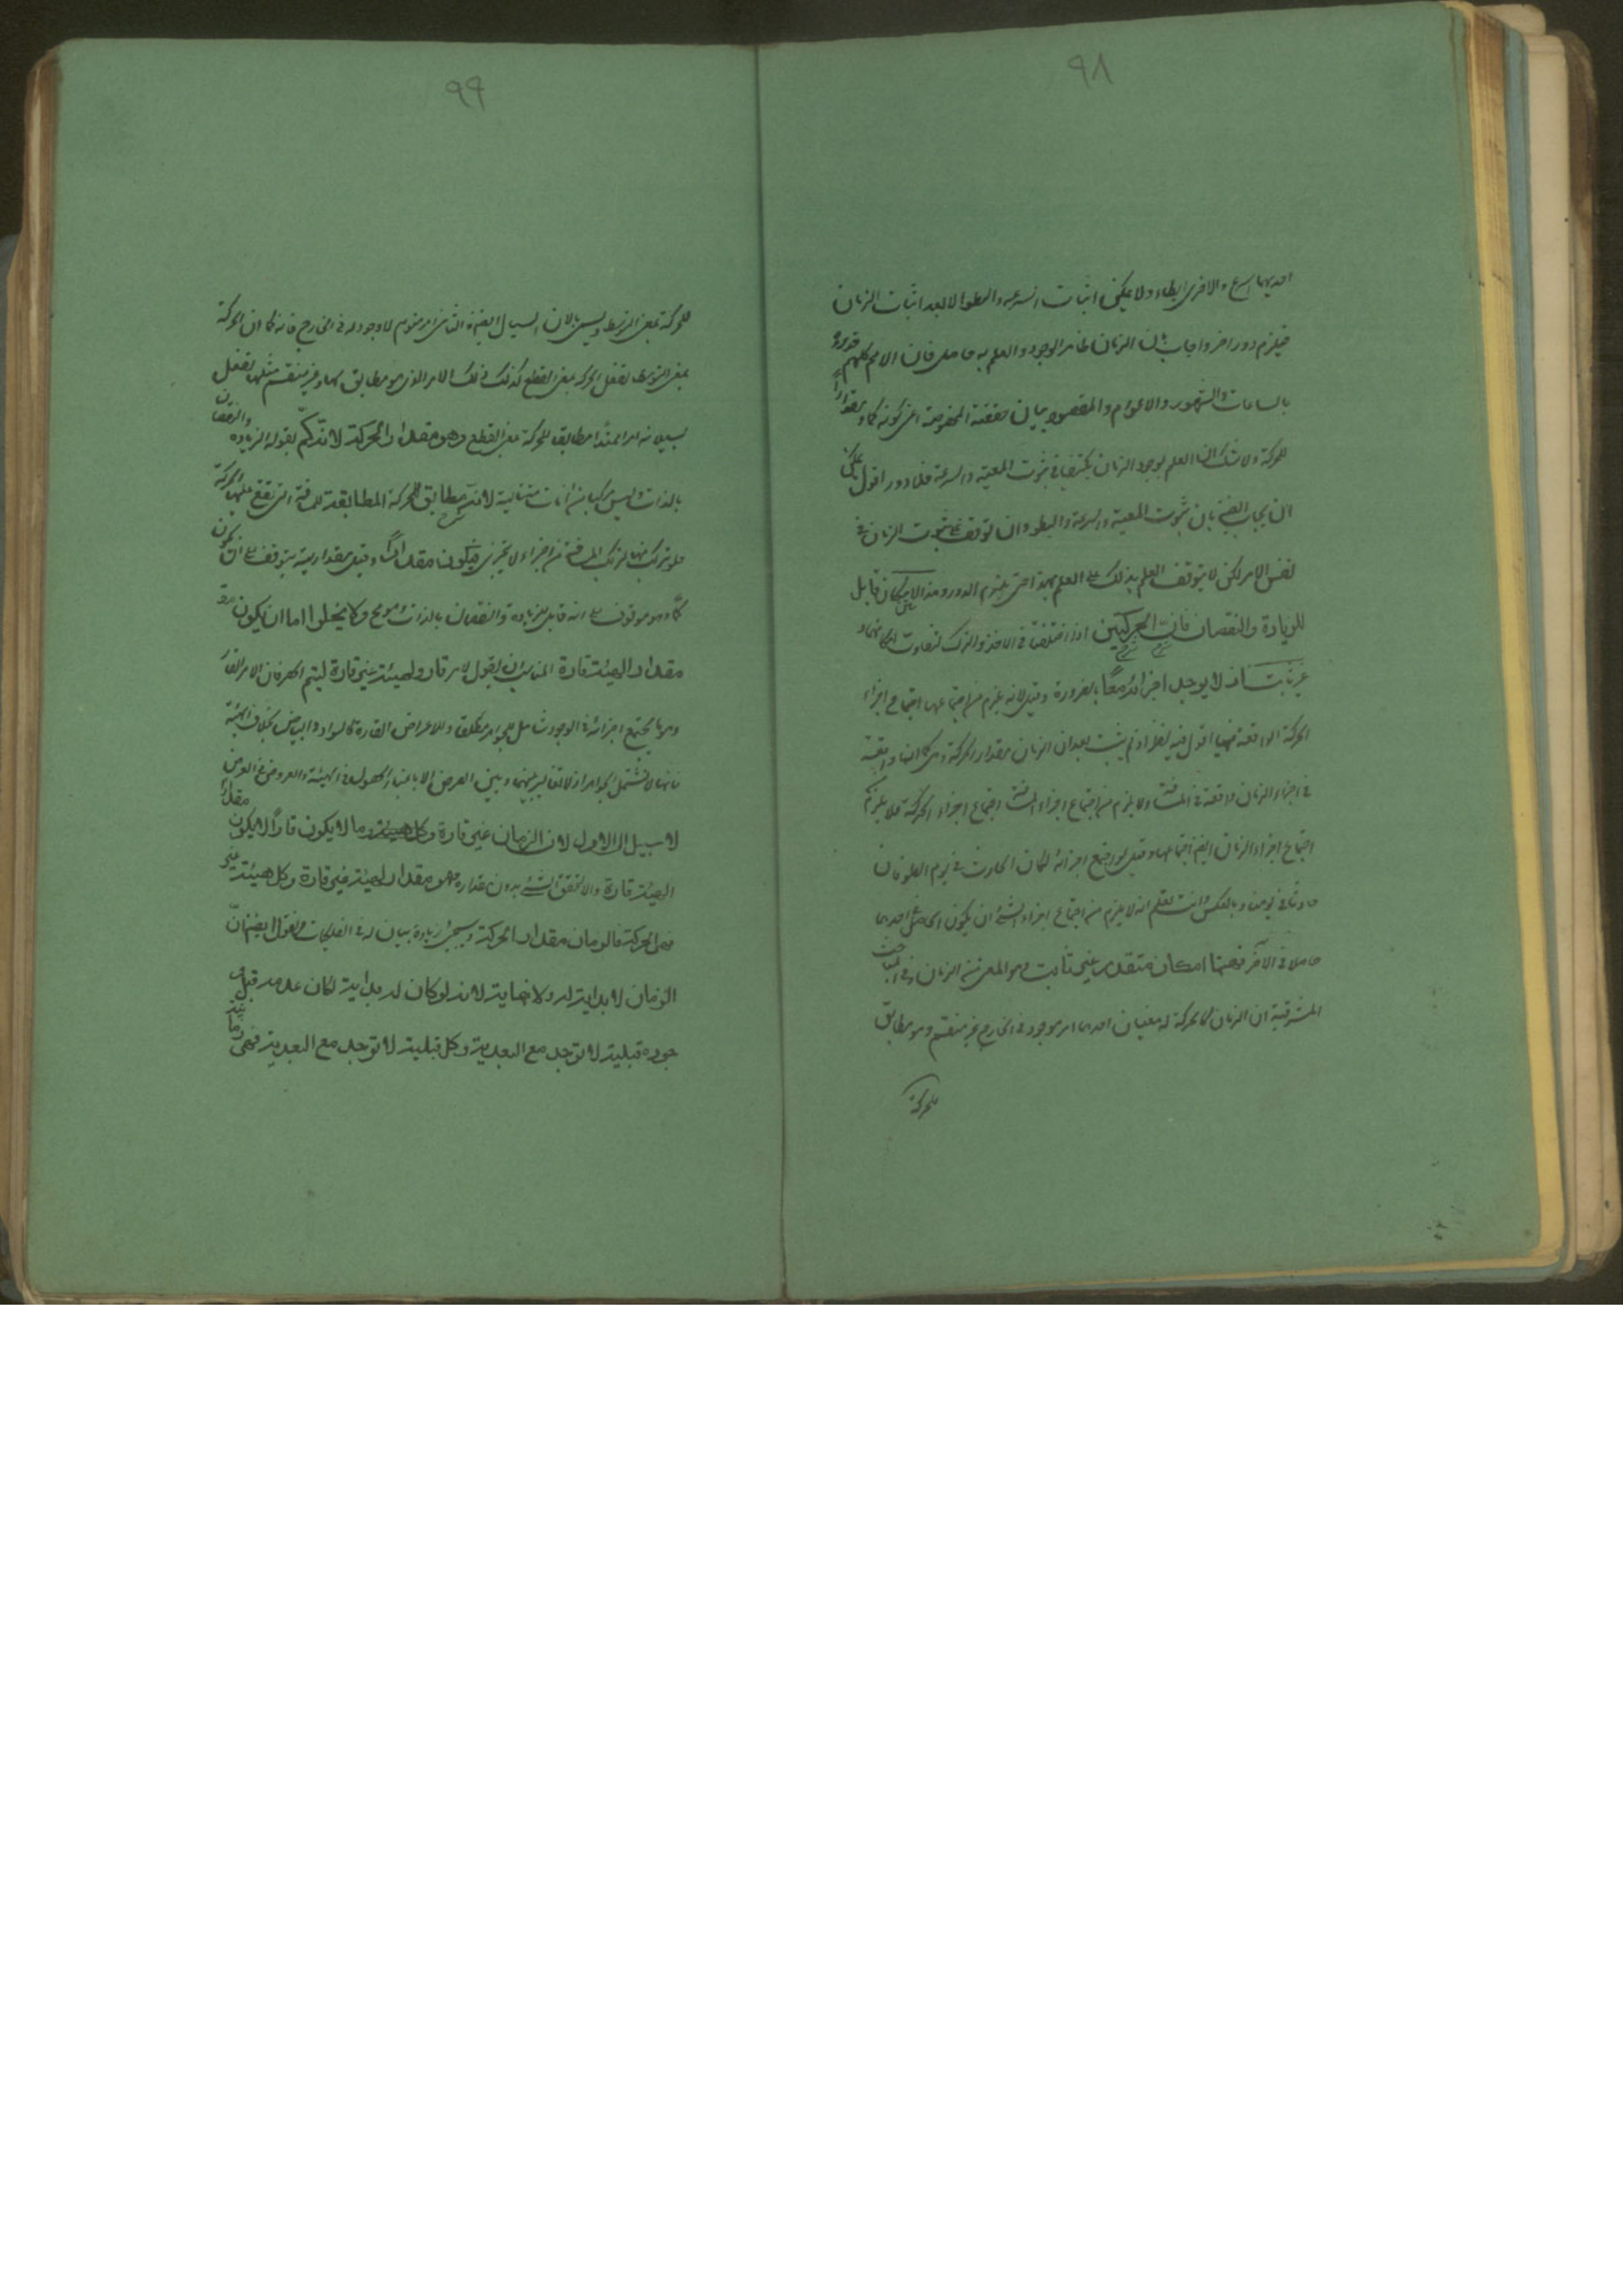 ٩٨
احديهما اسرع والاخرى ابطاء ولا يمكن اثبات السرعة والبطو الا بعد اثبات الزمان
فيلزم دور اخر واجاب بان الزمان ظاهر الوجود والعلم به حاصل فان الامم كلهم قدروه
بالساعات والشهور والاعوام والمقصود بيان حقيقته المخصوصة اعنى كونه كما ومقدارا
للحركة ولا شك ان العلم بوجود الزمان يكفينا فى ثبوت المعية والسرعة فلا دور اقول يمكن
ان يجاب ايضا بان ثبوت المعية والسرعة والبطو وان توقف على ثبوت الزمان فى
نفس الامر لكن لا يتوقف العلم بذلك على العلم بهذا حتى يلزم الدور وهذا الامكان قابل
للزيادة والنقصان فان الحركتين اذا اختلفتا فى الاخذ والترك تفاوت امكانهما و
غير ثابت اذ لا يوجد اجزائه معا بالضرورة وقيل لانه يلزم من اجتماعها اجتماع اجزاء
الحركة الواقعة فيها اقول فيه نظر اذ لم يثبت بعد ان الزمان مقدار الحركة وهى كما انها واقعة
فى اجزاء الزمان واقعة فى المسافة ولا يلزم من اجتماع اجزاء المسافة اجتماع اجزاء الحركة فلا يلزم
اجتماع اجزاء الزمان ايضا اجتماعها وقيل لو اجتمع اجزائه لكان الحادث فى يوم الطوفان
حادثا فى يومنا وبالعكس وانت تعلم انه لا يلزم من اجتماع اجزاء الشئ ان يكون الحاصل فى احدهما
حاصلا فى الآخر فههنا امكان متقدر غير ثابت وهو المعنى من الزمان وفى المباحث
المشرقية ان الزمان كالحركة له معنيان احدهما امر موجود فى الخارج غير منقسم وهو مطابق
للحركة
٩٩
للحركة بمعنى التوسط ويسمى بالان السيال ايضا والثانى امر متوهم لا وجود له فى الخارج فانه كما ان الحركة
بمعنى التوسط تفعل الحركة بمعنى القطع كذلك ذلك الامر الذى هو مطابق لها وغير منقسم مثلها تفعل
بسيلانه امرا ممتدا مطابقا للحركة بمعنى القطع وهو مقدار الحركة لانه كم لقوله الزيادة والنقصان
بالذات وليس مركبا من انات متتالية لانه مطابق للحركة المطابقة للمسافة التى تقع عليها الحركة
فلو تركب منها لتركب المسافة من اجزاء لا تتجزى فيكون مقدارا وقيل مقداريته يتوقف على ان يكون
كما وهو موقوف على انه قابل للزيادة والنقصان بالذات وهو مم ولا يخلوا اما ان يكون
مقدارا لهيئة قارة المناسب ان يقول لامر قار ولهيئة غير قارة ليتم الحصر فان الامر القار
وهو ما يجتمع اجزائه فى الوجود شامل للجواهر مطلقا وللاعراض القارة كالسواد والبياض بخلاف الهيئة
فانها لا تشتمل الجواهر اذ لا تغاير بينها وبين العرض الا باعتبار الحصول فى الهيئة والعروض فى العرض
لا سبيل الى الاول لان الزمان غير قارة وما لا يكون قارا لا يكون مقدارا
لهيئة قارة والا لتحقق الشئ بدون مقداره فهو مقدار لهيئة غير قارة وكل هيئة غير
فهى الحركة فالزمان مقدار الحركة وسيجئ زيادة بيان له فى الفلكيات ونقول ايضا ان
الزمان لا بداية له ولا نهاية لانه لو كان له بداية لكان عدمه قبل
وجوده قبلية لا توجد مع البعدية وكل قبلية لا توجد مع البعدية فهى